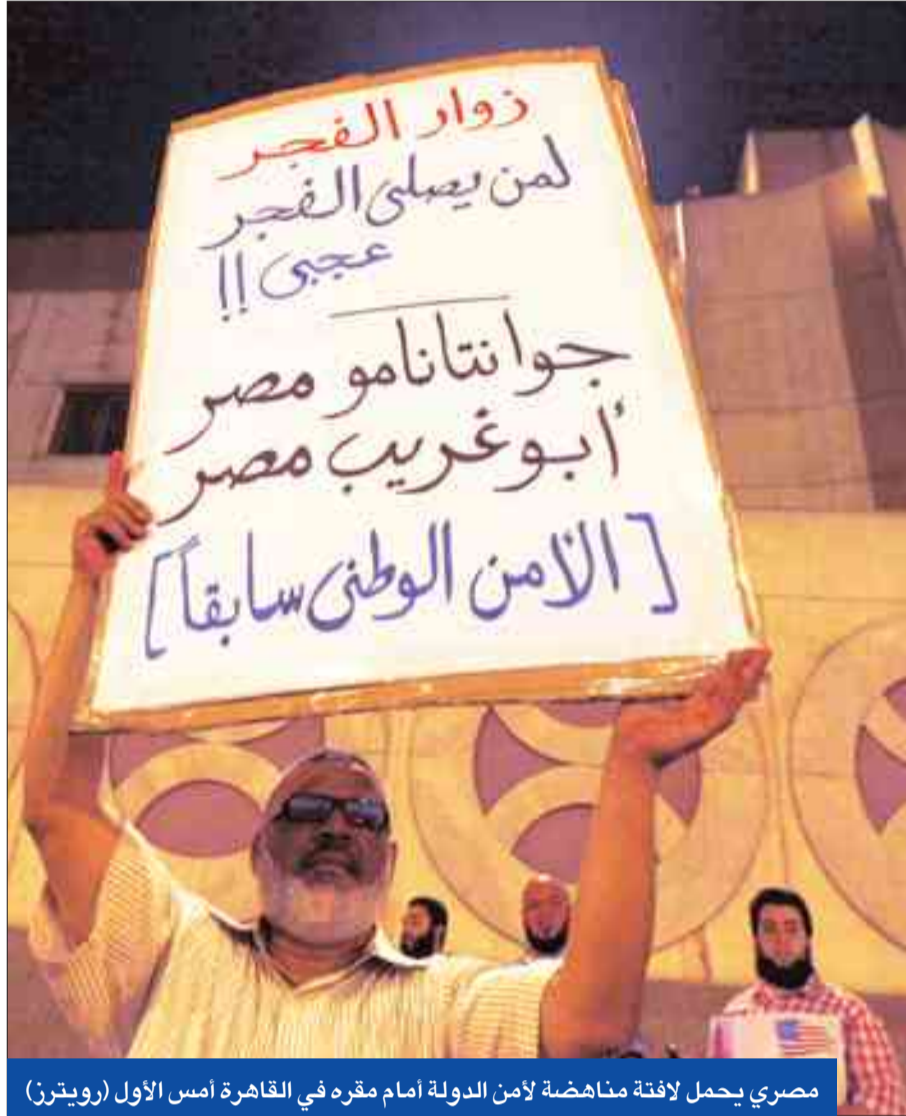 زوار الفجر
لمن يصلى الفجر
عجبى !!
جوانتانامو مصر
أبو غريب مصر
[ الأمن الوطنى سابقاً ]
مصري يحمل لافتة مناهضة لأمن الدولة أمام مقره في القاهرة أمس الأول (رويترز)